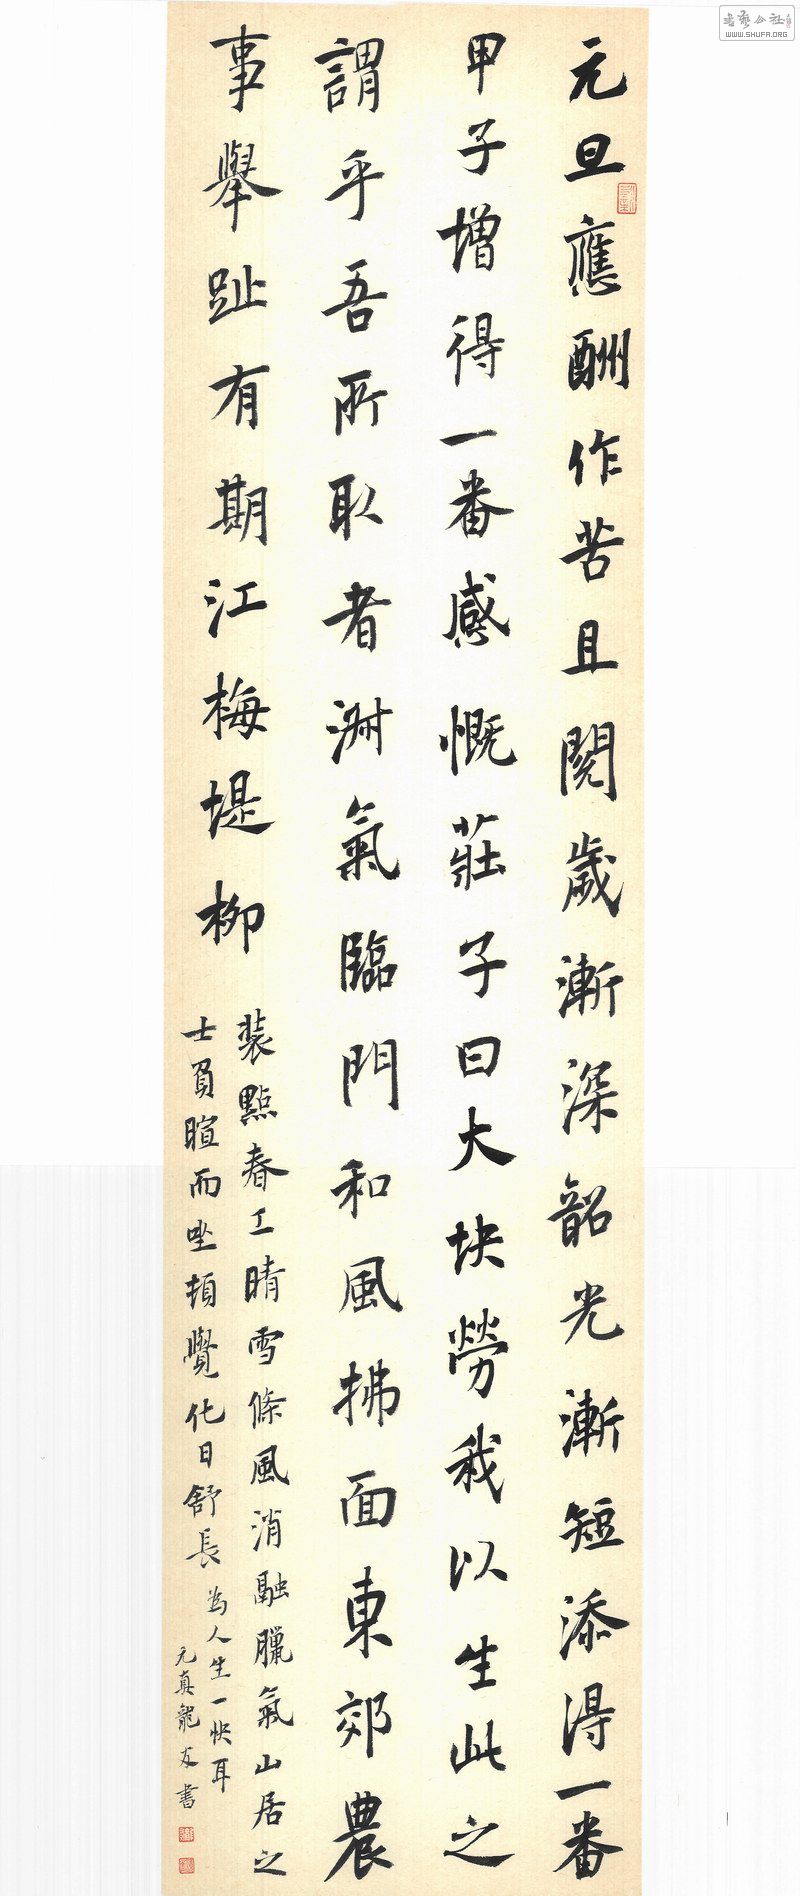 元旦應酬作苦且閱歲漸深韶光漸短添得一番
甲子增得一番感慨莊子曰大块勞我以生此之
謂乎吾所取者淑氣臨門和風拂面東郊農
事舉趾有期江梅堤柳
裝點春工晴雪條風消融臘氣山居之
士負暄而坐頓覺化日舒長
為人生一快耳
元真龍友書
書藝公社
WWW.SHUFA.ORG